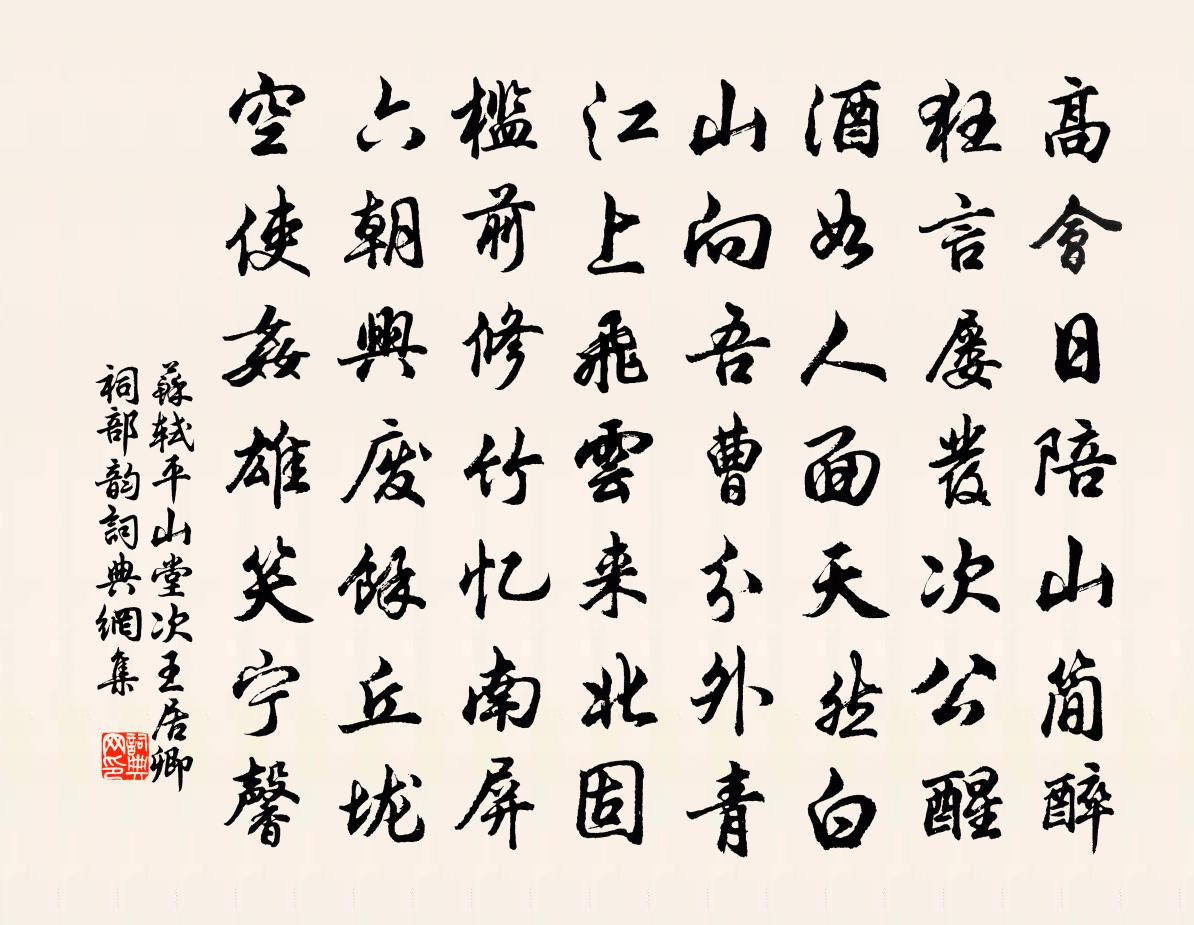 高會日陪山簡醉
狂言屡發次公醒
酒如人面天然白
山向吾曹分外青
江上飛雲来北固
檻前修竹忆南屏
六朝興废餘丘垅
空使姦雄笑宁馨
蘇軾平山堂次王居卿
祠部韵詞典網集
詞典
网印